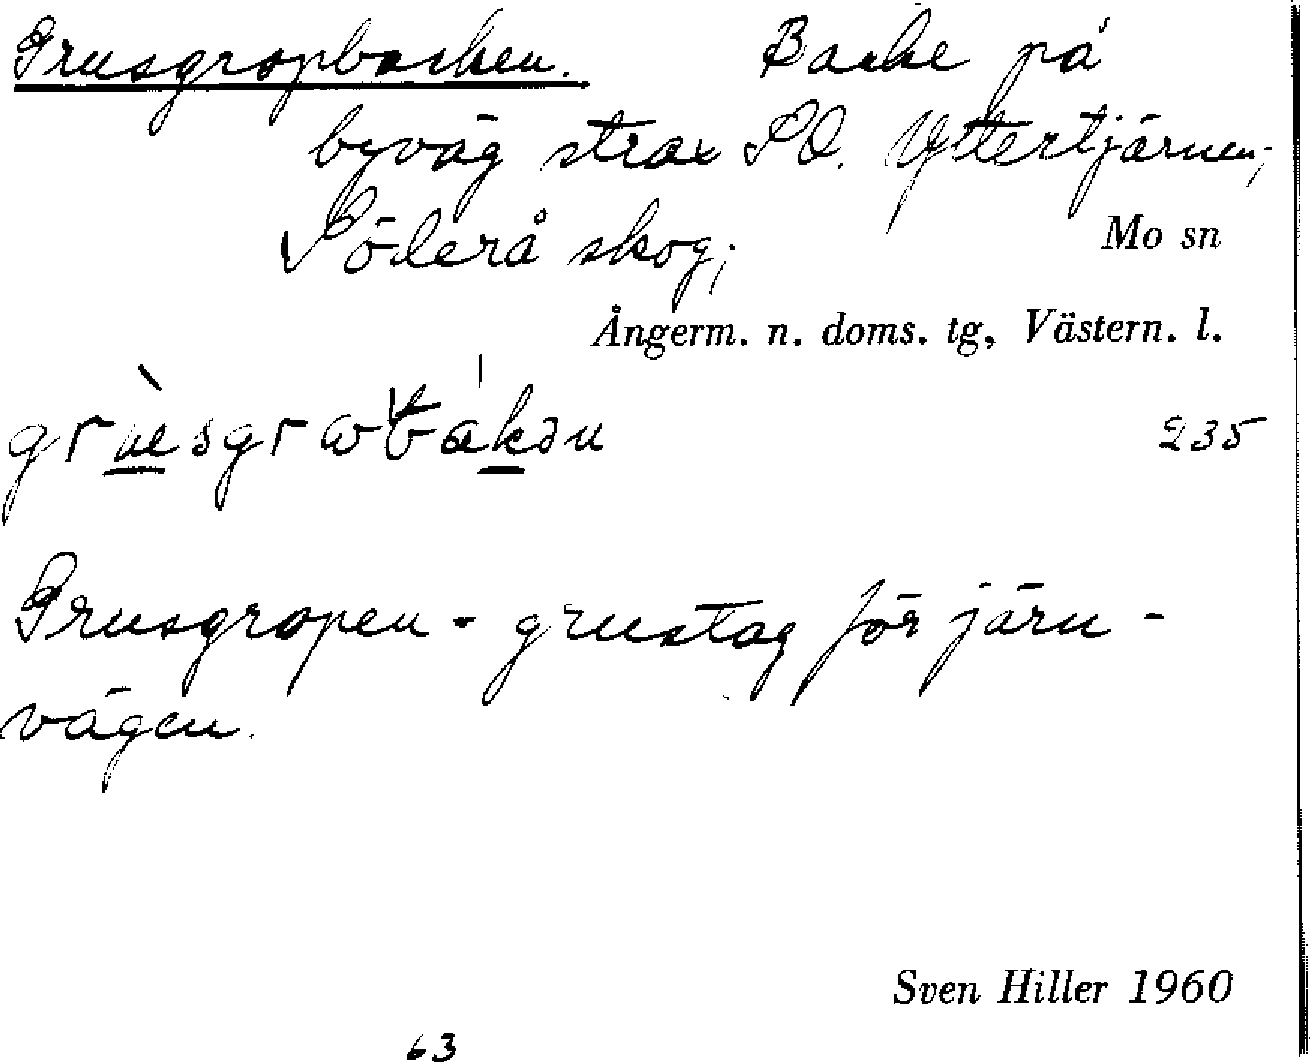 Grusgropbacken. Backe på
byväg strax SO. Yttertjärnen;
Sölerå skog; Mo sn
Ångerm. n. doms. tg, Västern. l.
235
Grusgropen - grustag för järn-
vägen.
Sven Hiller 1960
63